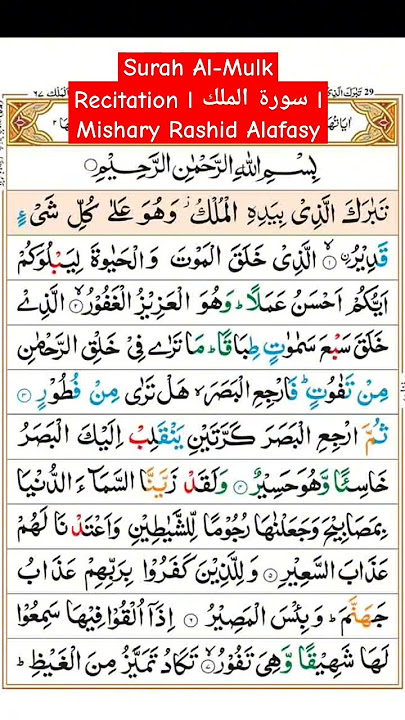 Surah Al-Mulk
Recitation | سورة الملك |
Mishary Rashid Alafasy
تَبٰرَكَ الَّذِیْ 29
الْمُلْك ٦٧
بِسْمِ اللّٰهِ الرَّحْمٰنِ الرَّحِیْمِ
تَبٰرَكَ الَّذِیْ بِیَدِهِ الْمُلْكُ ؗ وَهُوَ عَلٰی كُلِّ شَیْءٍ
قَدِیْرُ ۙ﴿۱﴾ الَّذِیْ خَلَقَ الْمَوْتَ وَ الْحَیٰوةَ لِیَبْلُوَكُمْ
اَیُّكُمْ اَحْسَنُ عَمَلًا ؕ وَهُوَ الْعَزِیْزُ الْغَفُوْرُ ۙ﴿۲﴾ الَّذِیْ
خَلَقَ سَبْعَ سَمٰوٰتٍ طِبَاقًا ؕ مَا تَرٰی فِیْ خَلْقِ الرَّحْمٰنِ
مِنْ تَفٰوُتٍ ؕ فَارْجِعِ الْبَصَرَ ۙ هَلْ تَرٰی مِنْ فُطُوْرٍ ﴿۳﴾
ثُمَّ ارْجِعِ الْبَصَرَ كَرَّتَیْنِ یَنْقَلِبْ اِلَیْكَ الْبَصَرُ
خَاسِئًا وَّهُوَ حَسِیْرٌ ﴿۴﴾ وَلَقَدْ زَیَّنَّا السَّمَآءَ الدُّنْیَا
بِمَصَابِیْحَ وَجَعَلْنٰهَا رُجُوْمًا لِّلشَّیٰطِیْنِ وَاَعْتَدْنَا لَهُمْ
عَذَابَ السَّعِیْرِ ﴿۵﴾ وَلِلَّذِیْنَ كَفَرُوْا بِرَبِّهِمْ عَذَابُ
جَهَنَّمَ ؕ وَبِئْسَ الْمَصِیْرُ ﴿۶﴾ اِذَاۤ اُلْقُوْا فِیْهَا سَمِعُوْا
لَهَا شَهِیْقًا وَّهِیَ تَفُوْرُ ۙ﴿۷﴾ تَكَادُ تَمَیَّزُ مِنَ الْغَیْظِ ؕ